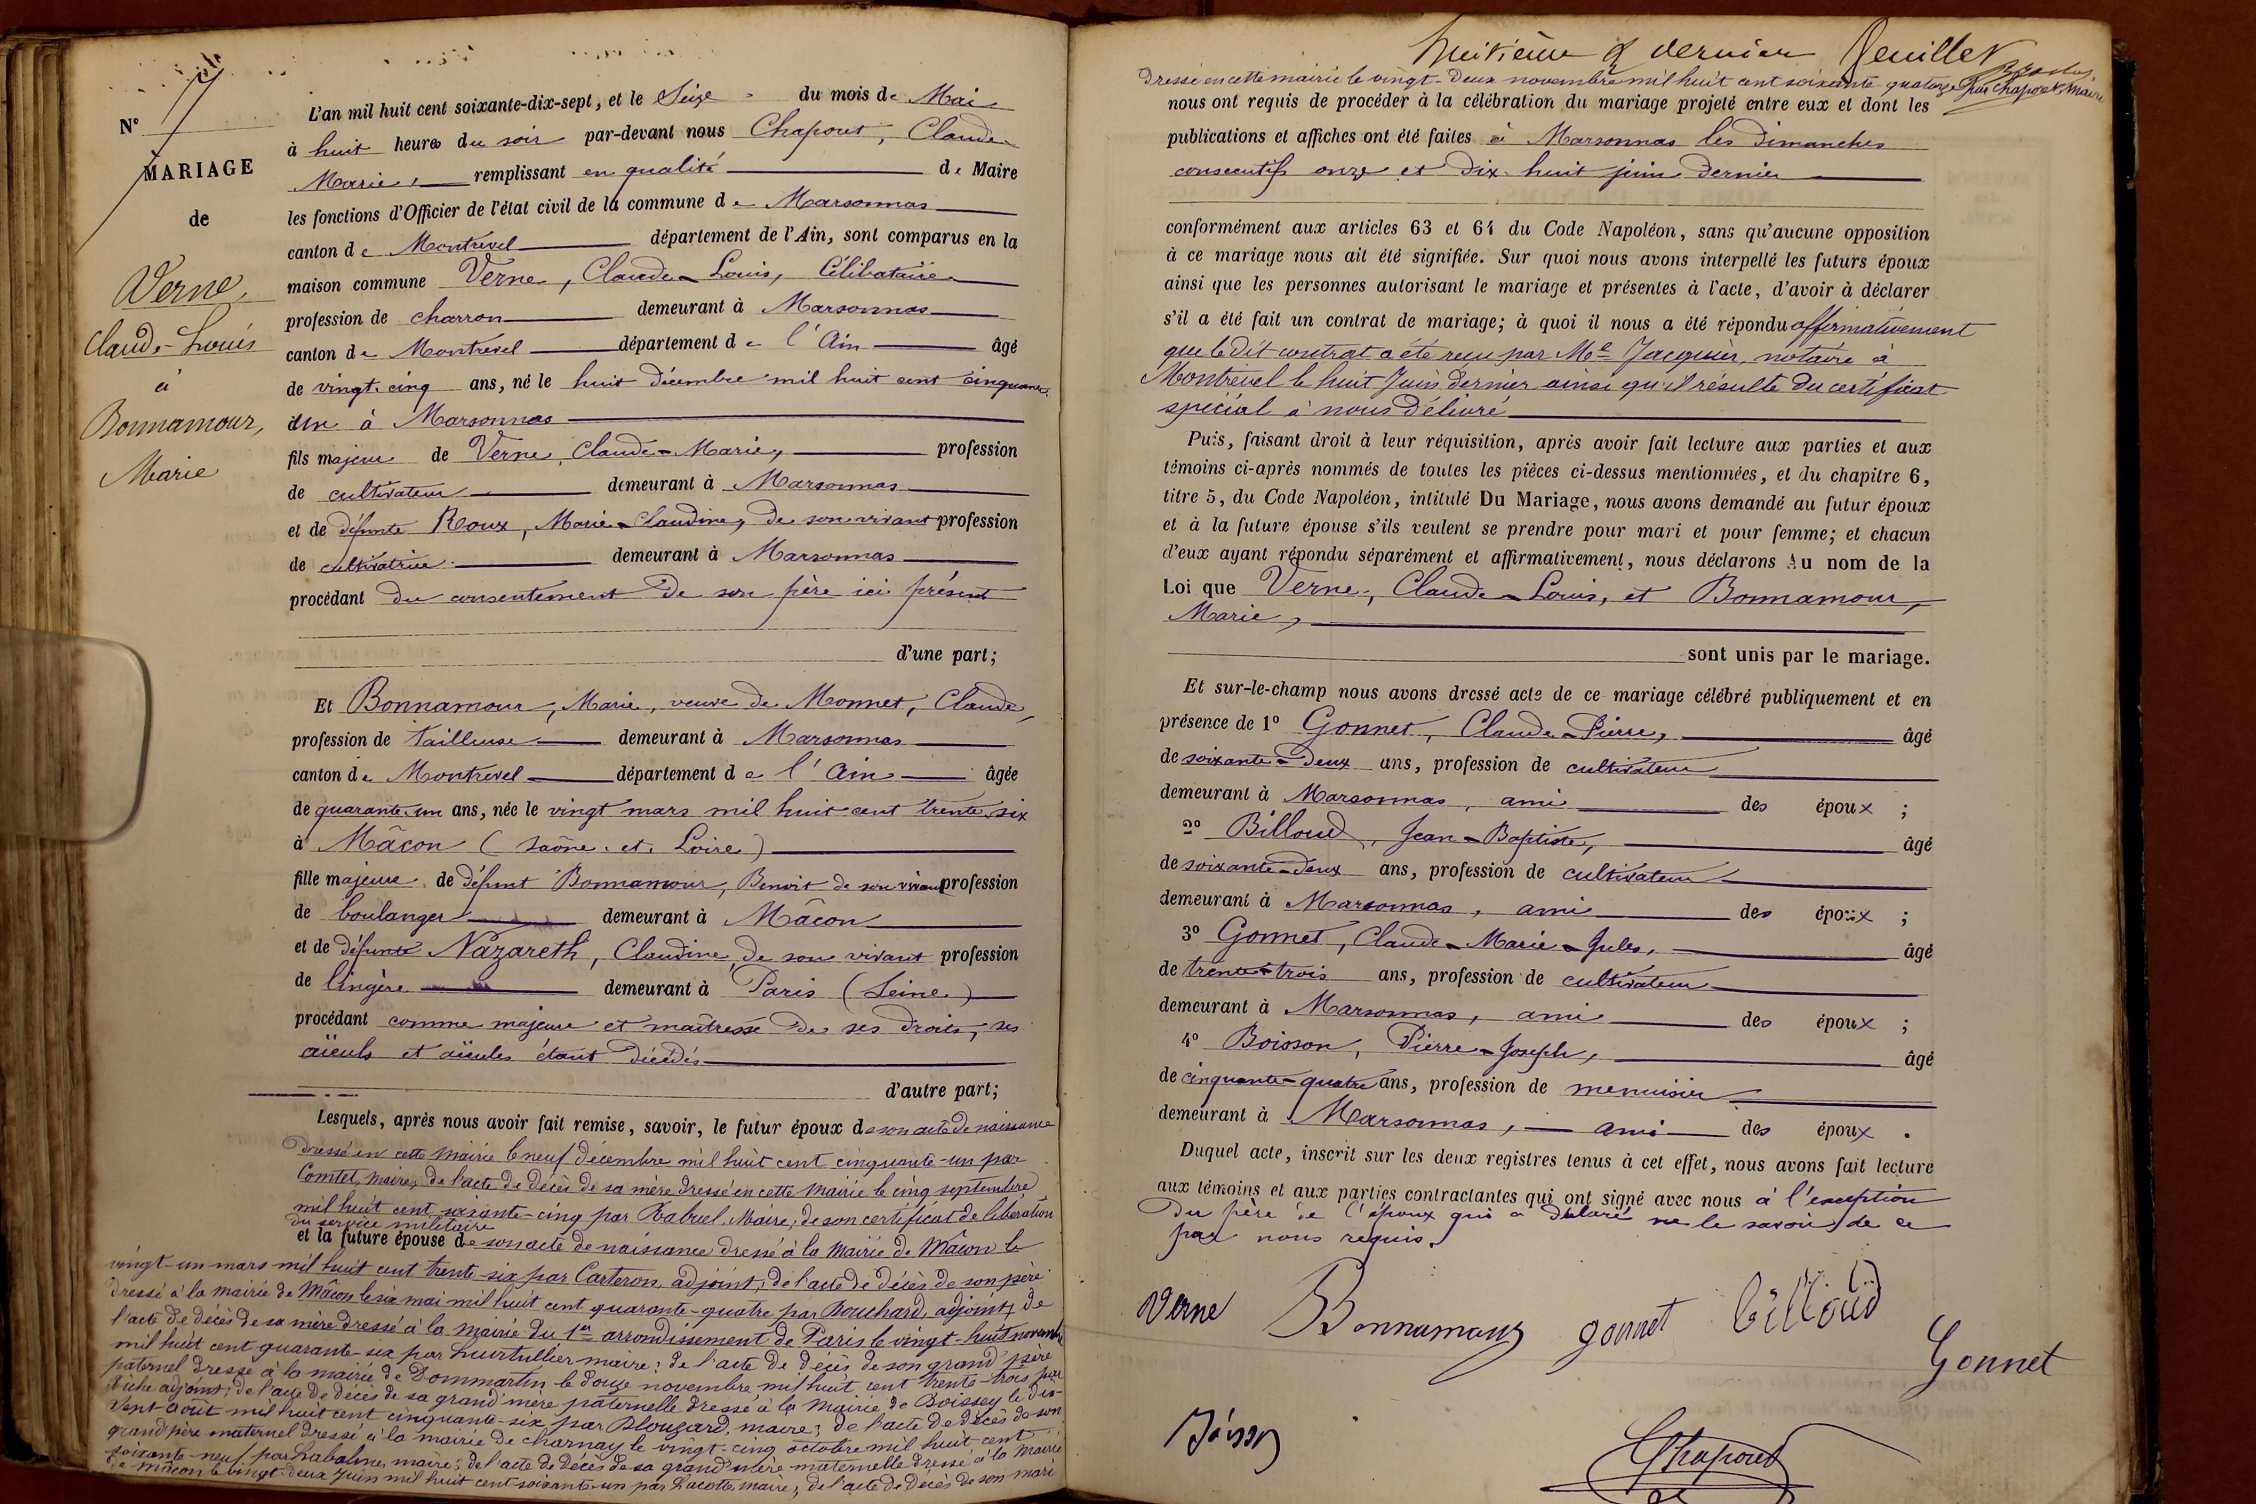 N° 7
MARIAGE
de
Verne,
Claude-Louis
à
Bonnamour,
Marie
L'an mil huit cent soixante-dix-sept, et le Seize du mois de Mai
à huit heures du soir par-devant nous Chapout, Claude
Marie, remplissant en qualité de Maire
les fonctions d'Officier de l'état civil de la commune de Marsonnas
canton de Montrevel département de l'Ain, sont comparus en la
maison commune Verne, Claude-Louis, Célibataire
profession de charron demeurant à Marsonnas
canton de Montrevel département de l'Ain âgé
de vingt-cinq ans, né le huit décembre mil huit cent cinquante
un à Marsonnas
fils majeur de Verne, Claude-Marie, profession
de cultivateur demeurant à Marsonnas
et de défunte Roux, Marie-Claudine, de son vivant profession
de cultivatrice demeurant à Marsonnas
procédant du consentement de son père ici présent
d'une part;
Et Bonnamour, Marie, veuve de Monnet, Claude,
profession de tailleuse demeurant à Marsonnas
canton de Montrevel département de l'Ain âgée
de quarante-un ans, née le vingt mars mil huit cent trente-six
à Mâcon (Saône-et-Loire)
fille majeure de défunt Bonnamour, Benoit de son vivant profession
de boulanger demeurant à Mâcon
et de défunte Nazareth, Claudine, de son vivant profession
de lingère demeurant à Paris (Seine)
procédant comme majeure et maîtresse de ses droits, ses
aïeuls et aïeules étant décédés
d'autre part;
Lesquels, après nous avoir fait remise, savoir, le futur époux de son acte de naissance
dressé en cette mairie le neuf décembre mil huit cent cinquante-un par
Comtet, maire, de l'acte de décès de sa mère dressé en cette mairie le cinq septembre
mil huit cent soixante-cinq par Rabuel, Maire; de son certificat de libération
du service militaire
et la future épouse de son acte de naissance dressé à la Mairie de Mâcon le
vingt-un mars mil huit cent trente-six par Carteron, adjoint; de l'acte de décès de son père
dressé à la mairie de Mâcon le six mai mil huit cent quarante-quatre par Bouchard, adjoint; de
l'acte de décès de sa mère dressé à la mairie du 1er arrondissement de Paris le vingt-huit novembre
mil huit cent quarante-six par maire; de l'acte de décès de son grand père
paternel dressé à la mairie de Dommartin le douze novembre mil huit cent trente-trois par
adjoint; de l'acte de décès de sa grand'mère paternelle dressé à la mairie de Boissey le dix-
sept août mil huit cent cinquante-six par Blouzard, maire; de l'acte de décès de son
grand'père maternel dressé à la mairie de Charnay le vingt-cinq octobre mil huit cent
soixante-neuf par Labalme, maire; de l'acte de décès de sa grand'mère maternelle dressé à la mairie
de Mâcon le vingt-deux Juin mil huit cent soixante-un par Lacotte, maire; de l'acte de décès de son mari
huitième & dernier feuillet
dressé en cette mairie le vingt-deux novembre mil huit cent soixante quatorze par Chapout, maire
nous ont requis de procéder à la célébration du mariage projeté entre eux et dont les
publications et affiches ont été faites à Marsonnas les dimanches
consécutifs onze et dix-huit juin dernier
conformément aux articles 63 et 64 du Code Napoléon, sans qu'aucune opposition
à ce mariage nous ait été signifiée. Sur quoi nous avons interpellé les futurs époux
ainsi que les personnes autorisant le mariage et présentes à l'acte, d'avoir à déclarer
s'il a été fait un contrat de mariage; à quoi il nous a été répondu affirmativement
que le dit contrat a été reçu par Me Jacquier, notaire à
Montrevel le huit Juin dernier ainsi qu'il résulte du certificat
spécial à nous délivré
Puis, faisant droit à leur réquisition, après avoir fait lecture aux parties et aux
témoins ci-après nommés de toutes les pièces ci-dessus mentionnées, et du chapitre 6,
titre 5, du Code Napoléon, intitulé Du Mariage, nous avons demandé au futur époux
et à la future épouse s'ils veulent se prendre pour mari et pour femme; et chacun
d'eux ayant répondu séparément et affirmativement, nous déclarons Au nom de la
Loi que Verne, Claude-Louis, et Bonnamour,
Marie,
sont unis par le mariage.
Et sur-le-champ nous avons dressé acte de ce mariage célébré publiquement et en
présence de 1° Gonnet, Claude-Pierre, âgé
de soixante-deux ans, profession de cultivateur
demeurant à Marsonnas, ami des époux;
2° Billoud, Jean-Baptiste, âgé
de soixante-deux ans, profession de cultivateur
demeurant à Marsonnas, ami des époux;
3° Gonnet, Claude-Marie-Jules, âgé
de trente-trois ans, profession de cultivateur
demeurant à Marsonnas, ami des époux;
4° Boisson, Pierre-Joseph, âgé
de cinquante-quatre ans, profession de menuisier
demeurant à Marsonnas, ami des époux.
Duquel acte, inscrit sur les deux registres tenus à cet effet, nous avons fait lecture
aux témoins et aux parties contractantes qui ont signé avec nous à l'exception
du père de l'époux qui a déclaré ne le savoir de ce
par nous requis.
Verne Bonnamour gonnet billoud
Gonnet
Boisson
Chapout